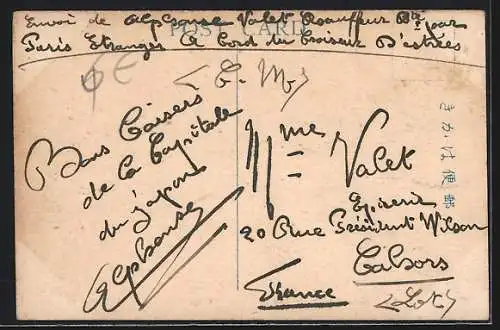 Envoi de Alphonse Valet Chauffeur Bte par
Paris Etranger A bord du Croiseur D'estrées
POST CARD
(E. M)
6E
Bons Baisers
de la Capitale
du japon
Alphonse
きかは便郵
Mme Valet
Epicerie
20 Rue Président Wilson
Cahors
(Lot)
France